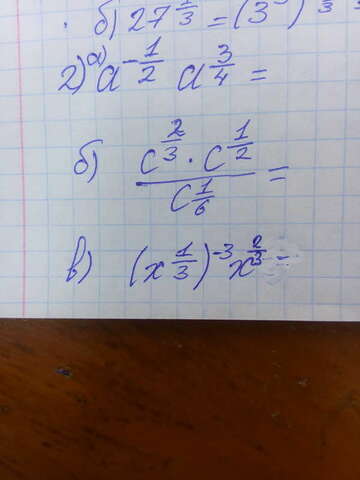 б) 27^{1/3} = (3^3)^{1/3}
2) а) a^{-1/2} a^{3/4} =
б) \frac{c^{2/3} · c^{1/2}}{c^{1/6}} =
в) (x^{1/3})^{-3} x^{2/3} =